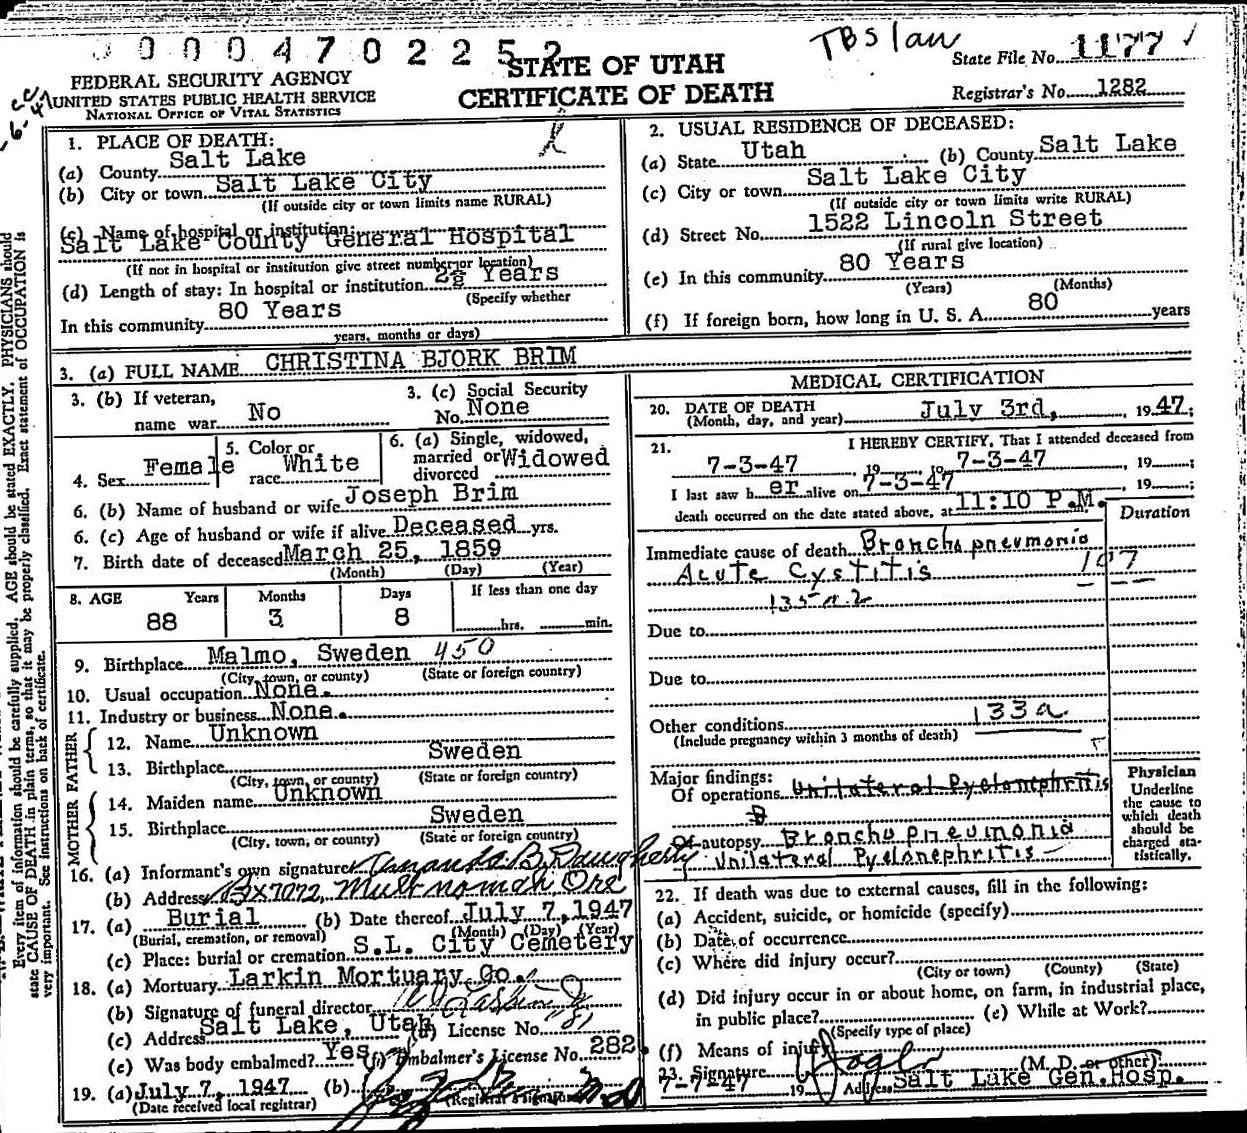 0000470225 2
TBS law
STATE OF UTAH
CERTIFICATE OF DEATH
State File No. 1177
Registrar's No. 1282
FEDERAL SECURITY AGENCY
UNITED STATES PUBLIC HEALTH SERVICE
NATIONAL OFFICE OF VITAL STATISTICS
1. PLACE OF DEATH:
(a) County Salt Lake
(b) City or town Salt Lake City
(If outside city or town limits name RURAL)
(c) Name of hospital or institution:
Salt Lake County General Hospital
(If not in hospital or institution give street number or location)
(d) Length of stay: In hospital or institution 2½ Years
(Specify whether
In this community 80 Years
years, months or days)
2. USUAL RESIDENCE OF DECEASED:
(a) State Utah (b) County Salt Lake
(c) City or town Salt Lake City
(If outside city or town limits write RURAL)
(d) Street No. 1522 Lincoln Street
(If rural give location)
(e) In this community 80 Years
(Years) (Months)
(f) If foreign born, how long in U. S. A. 80 years
3. (a) FULL NAME CHRISTINA BJORK BRIM
3. (b) If veteran, name war No
3. (c) Social Security No. None
4. Sex Female
5. Color or race White
6. (a) Single, widowed, married or divorced Widowed
6. (b) Name of husband or wife Joseph Brim
6. (c) Age of husband or wife if alive Deceased yrs.
7. Birth date of deceased March 25, 1859
(Month) (Day) (Year)
8. AGE Years Months Days If less than one day
88 3 8 hrs. min.
9. Birthplace Malmo, Sweden 450
(City, town, or county) (State or foreign country)
10. Usual occupation None.
11. Industry or business None.
FATHER
12. Name Unknown
13. Birthplace Sweden
(City, town, or county) (State or foreign country)
MOTHER
14. Maiden name Unknown
15. Birthplace Sweden
(City, town, or county) (State or foreign country)
16. (a) Informant's own signature Amanda B. Daugherty
(b) Address Bx 7072, Multnomah, Ore
17. (a) Burial (b) Date thereof July 7, 1947
(Burial, cremation, or removal) (Month) (Day) (Year)
(c) Place: burial or cremation S.L. City Cemetery
18. (a) Mortuary Larkin Mortuary Co.
(b) Signature of funeral director
(c) Address Salt Lake, Utah (d) License No.
(e) Was body embalmed? Yes (f) Embalmer's License No. 282.
19. (a) July 7, 1947 (b)
(Date received local registrar) (Registrar's signature)
MEDICAL CERTIFICATION
20. DATE OF DEATH July 3rd, 1947;
(Month, day, and year)
21. I HEREBY CERTIFY, That I attended deceased from
7-3-47, 19 to 7-3-47, 19;
I last saw her alive on 7-3-47, 19;
death occurred on the date stated above, at 11:10 P.M.
Duration
Immediate cause of death Bronchopneumonia
Acute Cystitis 107
Due to
Due to
Other conditions 133a
(Include pregnancy within 3 months of death)
Major findings:
Of operations Unilateral Pyelonephritis
Of autopsy Bronchopneumonia
Unilateral Pyelonephritis
Physician
Underline
the cause to
which death
should be
charged sta-
tistically.
22. If death was due to external causes, fill in the following:
(a) Accident, suicide, or homicide (specify)
(b) Date of occurrence
(c) Where did injury occur?
(City or town) (County) (State)
(d) Did injury occur in or about home, on farm, in industrial place,
in public place? (e) While at Work?
(Specify type of place)
(f) Means of injury
23. Signature (M. D. or other)
7-7-47 19 Address Salt Lake Gen. Hosp.
Every item of information should be carefully supplied. AGE should be stated EXACTLY. PHYSICIANS should
state CAUSE OF DEATH in plain terms, so that it may be properly classified. Exact statement of OCCUPATION is
very important. See instructions on back of certificate.